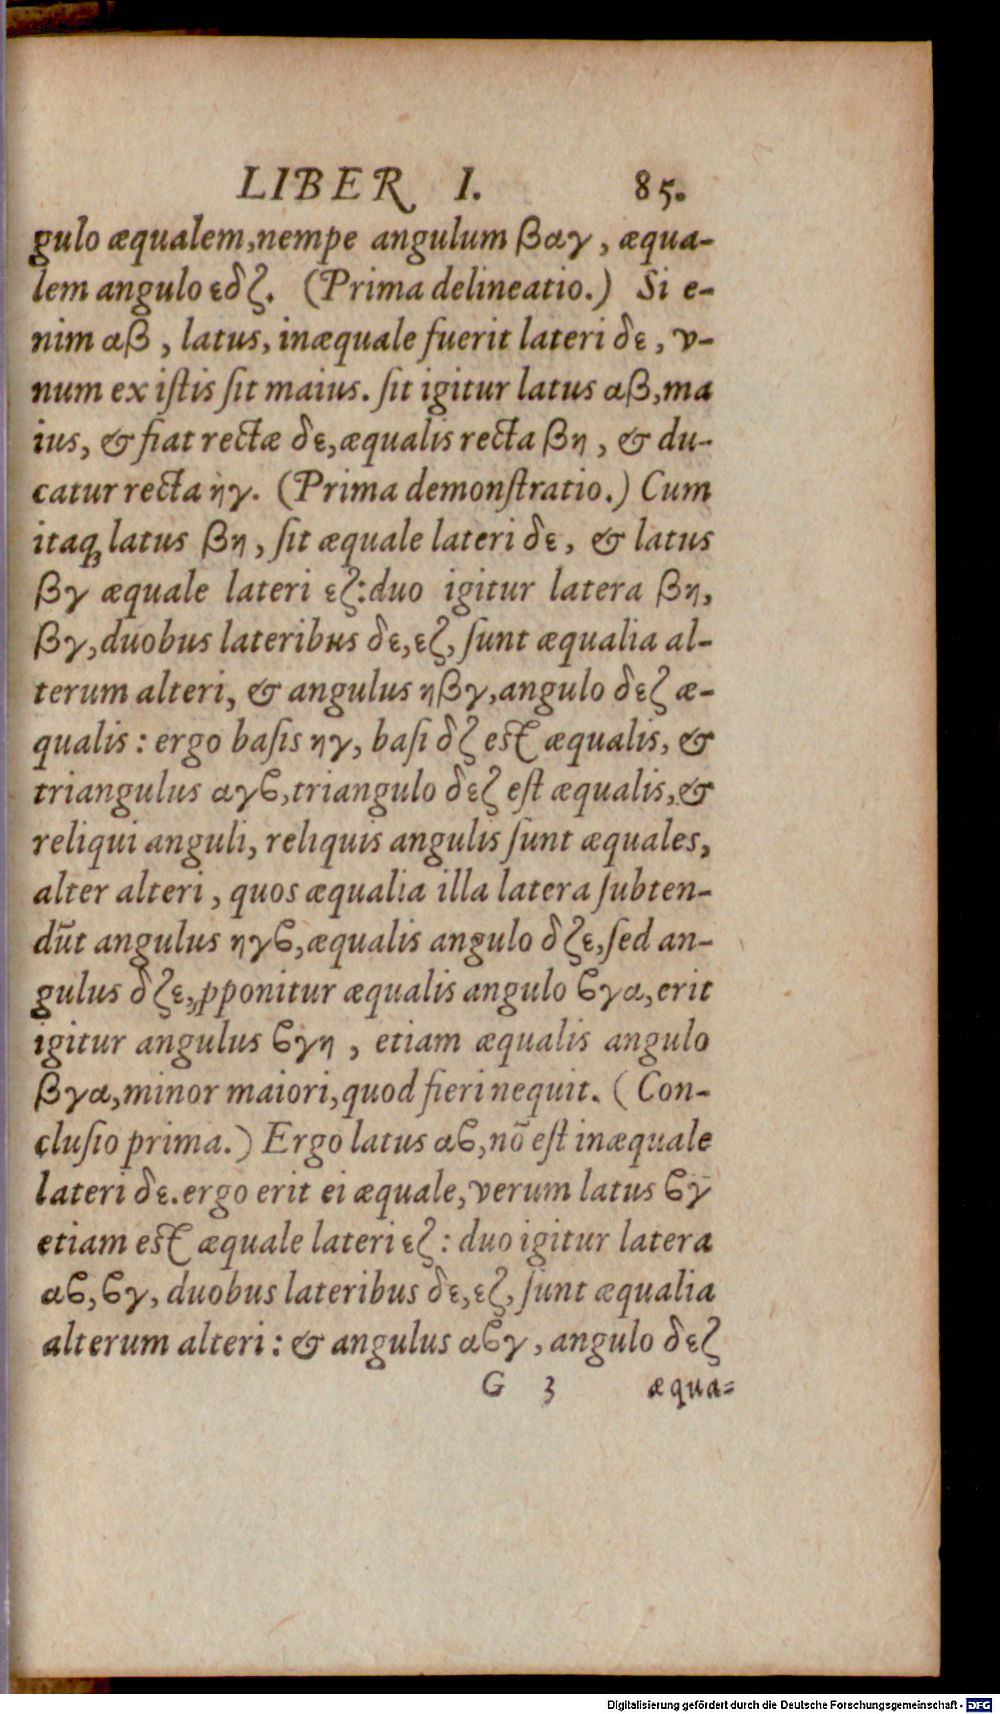 LIBER I. 85.
gulo æqualem, nempe angulum βαγ, æqua-
lem angulo εδζ. (Prima delineatio.) Si e-
nim αβ, latus, inæquale fuerit lateri δε, v-
num ex iſtis ſit maius. ſit igitur latus αβ, ma
ius, & fiat rectæ δε, æqualis recta βη, & du-
catur recta ὴγ. (Prima demonſtratio.) Cum
itaq; latus βη, ſit æquale lateri δε, & latus
βγ æquale lateri εζ: duo igitur latera βη,
βγ, duobus lateribus δε, εζ, ſunt æqualia al-
terum alteri, & angulus ηβγ, angulo δεζ æ-
qualis: ergo baſis ηγ, baſi δζ eſt æqualis, &
triangulus αγϐ, triangulo δεζ eſt æqualis, &
reliqui anguli, reliquis angulis ſunt æquales,
alter alteri, quos æqualia illa latera ſubten-
dūt angulus ηγϐ, æqualis angulo δζε, ſed an-
gulus δζε, ꝓponitur æqualis angulo ϐγα, erit
igitur angulus ϐγη, etiam æqualis angulo
βγα, minor maiori, quod fieri nequit. (Con-
cluſio prima.) Ergo latus αϐ, nō eſt inæquale
lateri δε. ergo erit ei æquale, verum latus ϐγ
etiam eſt æquale lateri εζ: duo igitur latera
αϐ, ϐγ, duobus lateribus δε, εζ, ſunt æqualia
alterum alteri: & angulus αϐγ, angulo δεζ
G 3 æqua-
Digitalisierung gefördert durch die Deutsche Forschungsgemeinschaft - DFG